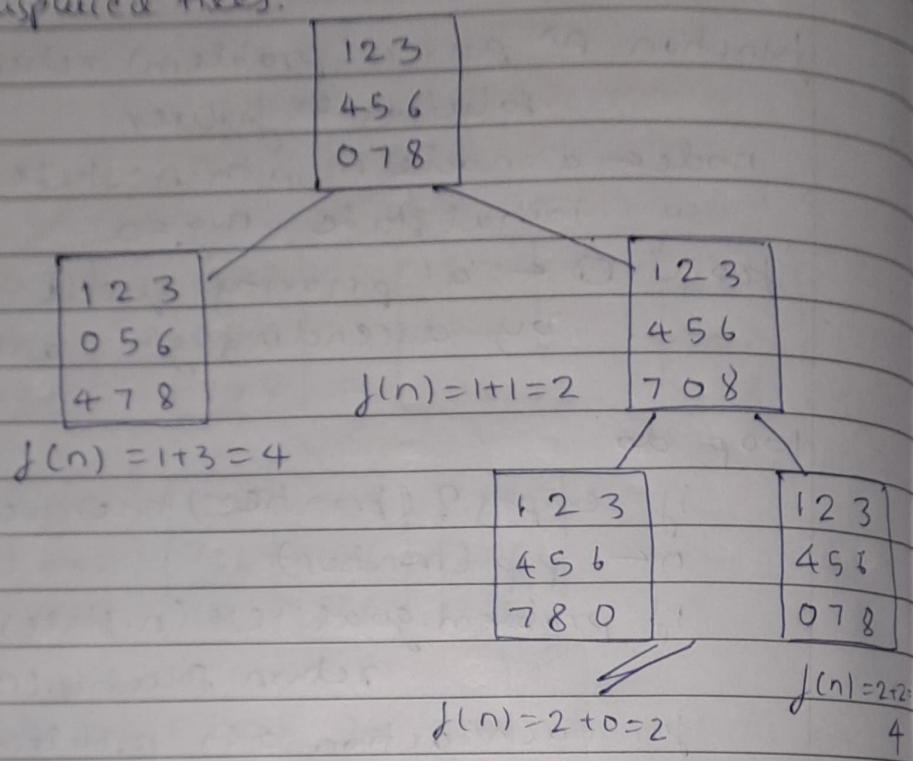 tiles.
1 2 3
4 5 6
0 7 8
1 2 3
0 5 6
4 7 8
f(n) = 1+3 = 4
f(n) = 1+1 = 2
1 2 3
4 5 6
7 0 8
1 2 3
4 5 6
7 8 0
f(n) = 2+0 = 2
1 2 3
4 5 6
0 7 8
f(n) = 2+2=
4